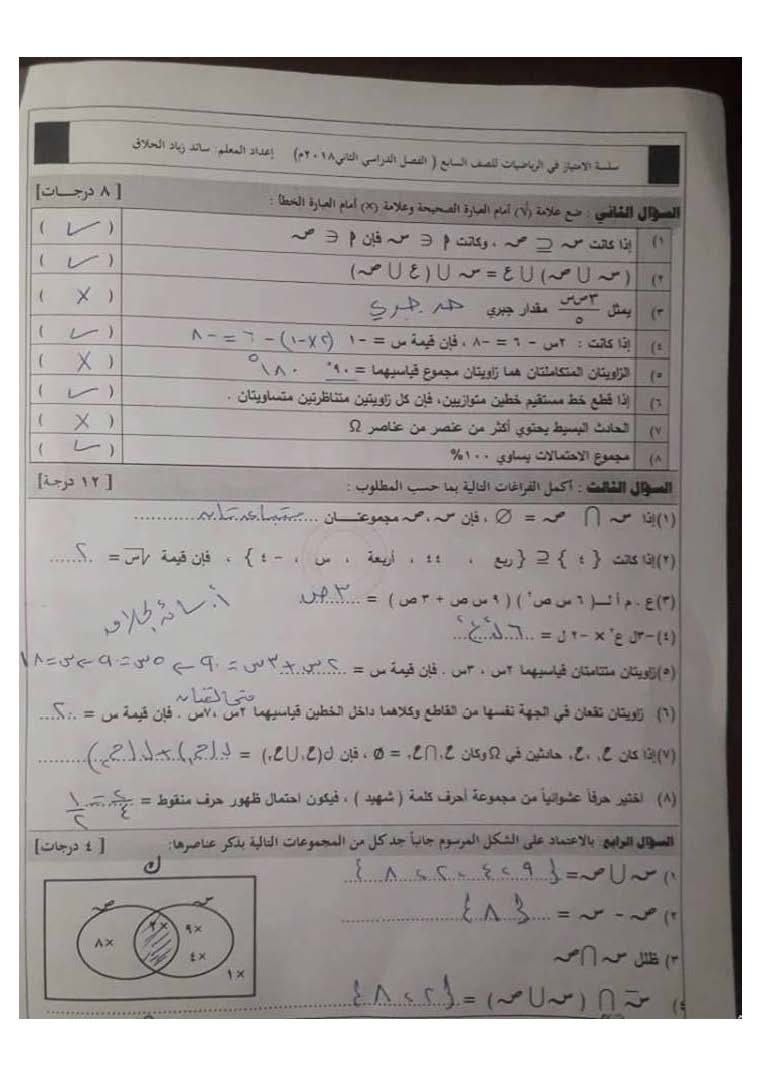 سلسلة الامتياز في الرياضيات للصف السابع ( الفصل الدراسي الثاني ٢٠١٨م) إعداد المعلم: سائد زياد الحلاق
السؤال الثاني : ضع علامة (√) أمام العبارة الصحيحة وعلامة (X) أمام العبارة الخطأ : [ ٨ درجات]
١) إذا كانت س ⊆ ص ، وكانت م ∈ س فإن م ∈ ص ( ✓ )
٢) (س ∪ ص) ∪ ع = س ∪ (ع ∪ ص) ( ✓ )
٣) يمثل ٣س ص / ٥ مقدار جبري حد جبري ( X )
٤) إذا كانت : ٢س – ٦ = -٨ ، فإن قيمة س = -١ (٢×-١) - ٦ = -٨ ( ✓ )
٥) الزاويتان المتكاملتان هما زاويتان مجموع قياسيهما = ٩٠° ١٨٠° ( X )
٦) إذا قطع خط مستقيم خطين متوازيين، فإن كل زاويتين متناظرتين متساويتان . ( ✓ )
٧) الحادث البسيط يحتوي أكثر من عنصر من عناصر Ω ( X )
٨) مجموع الاحتمالات يساوي ١٠٠% ( ✓ )
السؤال الثالث : أكمل الفراغات التالية بما حسب المطلوب : [ ١٢ درجة]
(١) إذا س ∩ ص = ∅ ، فإن س، ص مجموعتـــان ... متباعدتان ...
(٢) إذا كانت { ٤ } ⊆ { ربع ، ٤٤ ، أربعة ، س ، -٤ } ، فإن قيمة √س = ...٢...
(٣) ع . م . أ لـ ( ٦ س ص٢ ) ( ٩ س ص + ٣ ص ) = ...٣ص...
أ. سائد الحلاق
(٤) -٣ل ع٢ × -٢ ل = ...٦ل٢ع٢...
(٥) زاويتان متتامتان قياسيهما ٢س ، ٣س . فإن قيمة س = ٢س+٣س = ٩٠ ← ٥س = ٩٠ ← س = ١٨
متحالفتان
(٦) زاويتان تقعان في الجهة نفسها من القاطع وكلاهما داخل الخطين قياسيهما ٢س ،٧س . فإن قيمة س = ...٢٠...
(٧) إذا كان ح١ ،ح٢ حادثين في Ω وكان ح١ ∩ ح٢ = ∅ ، فإن ل(ح١ ∪ ح٢) = ل(ح١) + ل(ح٢)
(٨) اختير حرفاً عشوائياً من مجموعة أحرف كلمة ( شهيد ) ، فيكون احتمال ظهور حرف منقوط = ٢/٤ = ١/٢
السؤال الرابع: بالاعتماد على الشكل المرسوم جانباً جد كل من المجموعات التالية بذكر عناصرها: [ ٤ درجات]
ك
١) س ∪ ص = { ٩ ، ٤ ، ٢ ، ٨ }
س ص
٢) ص – س = { ٨ }
×٨ ×٢ ×٩
٣) ظلل س ∩ ص
×٤
×١
٤) س̄ ∩ (س ∪ ص) = { ٢ ، ٨ }